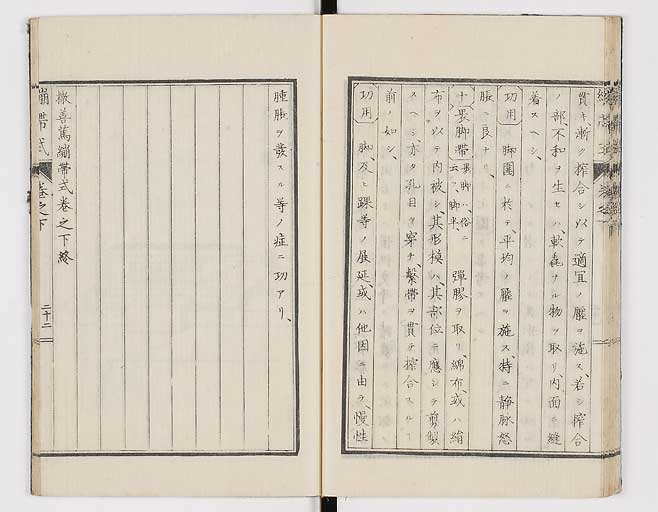 貫キ漸ク搾合シ以テ適宜ノ壓ヲ施ス、若シ搾合
ノ部、不和ヲ生セハ、軟毳ナル物ヲ取リ、内面ニ縫
着スヘシ、
功用 脚圍ニ於テ、平均ノ壓ヲ施ス、特ニ静脉怒
脹ニ良ナリ、
十 畏脚帶 畏脚ハ、俗ニ云フ、脚半、 彈膠ヲ取リ、綿布、或ハ絹
布ヲ以テ内被シ、其形模ハ、其部位ニ應シテ剪製
スヘシ、亦タ孔目ヲ穿チ、繫帶ヲ貫テ搾合スルヿ
前ノ如シ、
功用 脚、及ヒ踝等ノ展延、或ハ他因ニ由テ、慢性
腫脹ヲ發スル等ノ症ニ功アリ、
撒善篤繃帶式卷之下終
繃帶式 卷之下 二十二